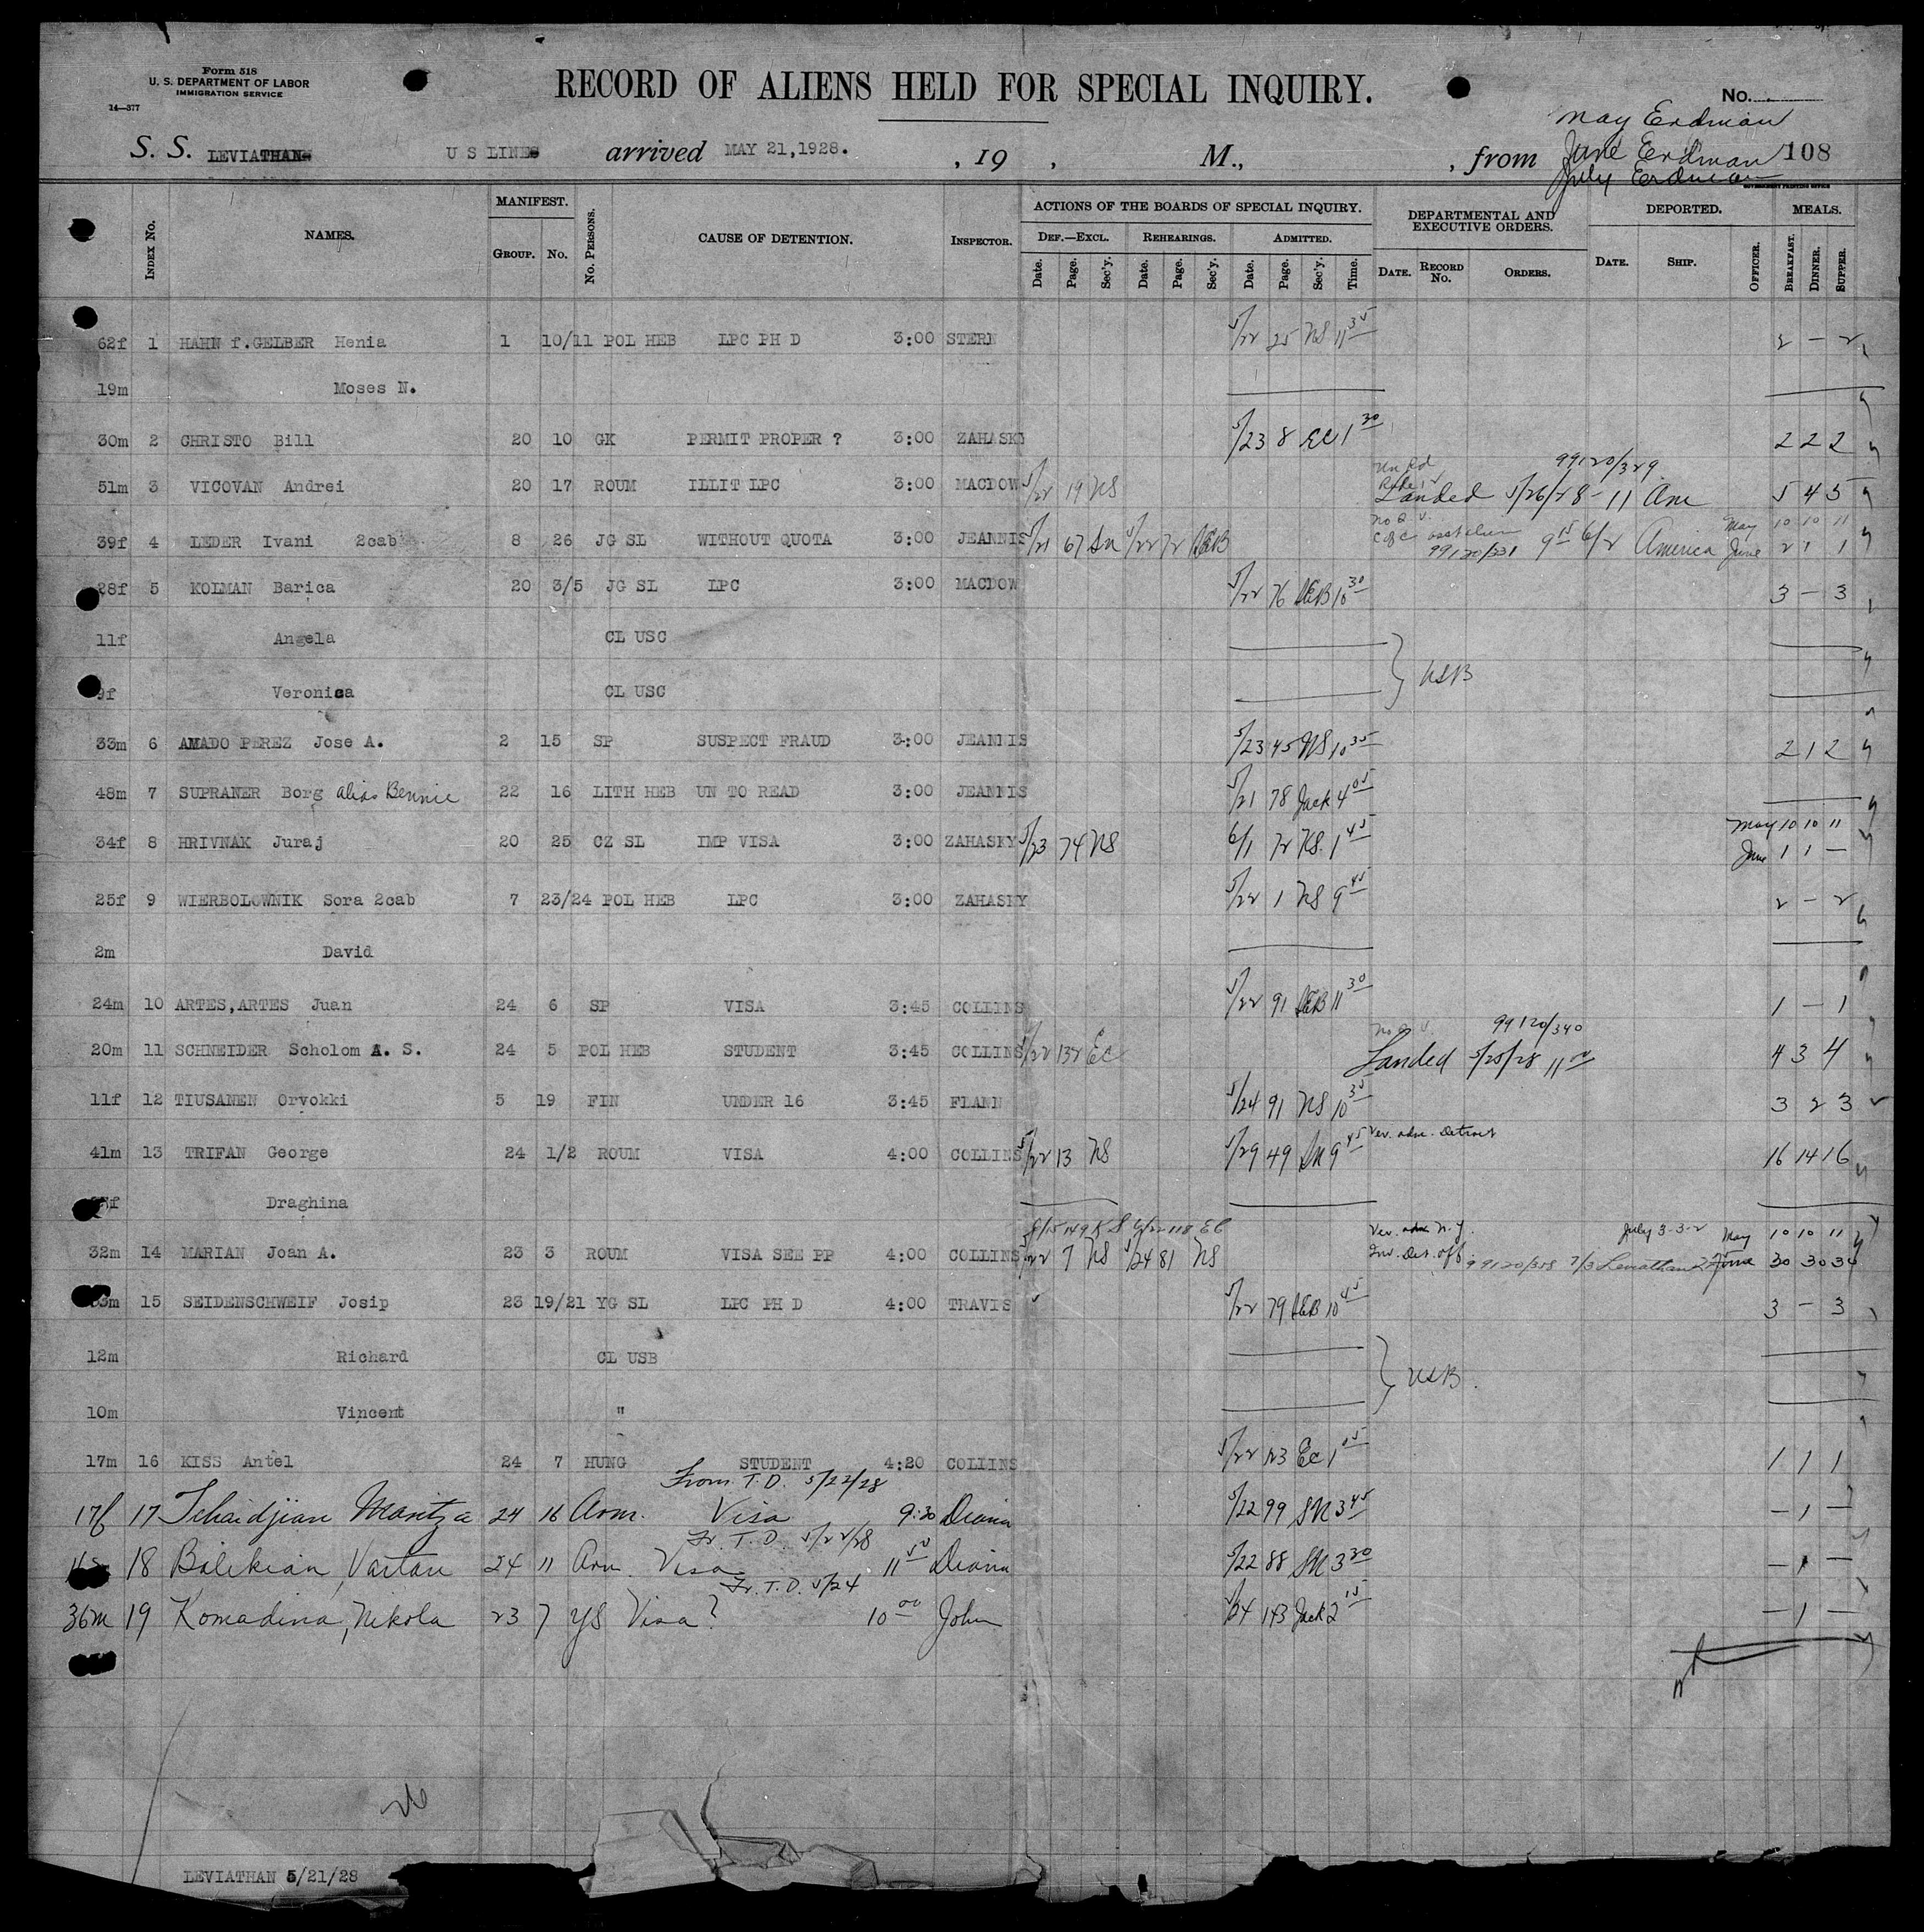 Form 518
U. S. DEPARTMENT OF LABOR
IMMIGRATION SERVICE
14—377
RECORD OF ALIENS HELD FOR SPECIAL INQUIRY.
No.
May Erdman
June Erdman 108
July Erdman
S. S. LEVIATHAN U S LINES arrived MAY 21, 1928. , 19 , M., , from
GOVERNMENT PRINTING OFFICE
Index No. NAMES. MANIFEST. Group. No. No. Persons. CAUSE OF DETENTION. Inspector. ACTIONS OF THE BOARDS OF SPECIAL INQUIRY. DEPARTMENTAL AND EXECUTIVE ORDERS. DEPORTED. MEALS.
Def.—Excl. Rehearings. Admitted.
Date. Page. Sec'y. Date. Page. Sec'y. Date. Page. Sec'y. Time. Date. Record No. Orders. Date. Ship. Officer. Breakfast. Dinner. Supper.
62f 1 HAHN f.GELBER Henia 1 10/11 POL HEB LPC PH D 3:00 STERN 5/22 25 NS 11 35 2 — 2
19m Moses N.
30m 2 CHRISTO Bill 20 10 GK PERMIT PROPER ? 3:00 ZAHASKY 5/23 8 EC 1 30 2 2 2
99120/329
51m 3 VICOVAN Andrei 20 17 ROUM ILLIT LPC 3:00 MACDOW 5/22 19 NS Landed 5/26/28 - 11 Am 5 4 5
May 10 10 11
39f 4 LEDER Ivani 2cab 8 26 JG SL WITHOUT QUOTA 3:00 JEANNIS 5/21 67 Sn 5/22 72 AEB 99120/331 9 15 6/2 America June 2 1 1
28f 5 KOLMAN Barica 20 3/5 JG SL LPC 3:00 MACDOW 5/22 76 AEB 10 30 3 — 3
11f Angela CL USC
USB
9f Veronica CL USC
33m 6 AMADO PEREZ Jose A. 2 15 SP SUSPECT FRAUD 3:00 JEANNIS 5/23 45 NS 10 35 2 1 2
48m 7 SUPRANER Borg alias Bennie 22 16 LITH HEB UN TO READ 3:00 JEANNIS 5/21 78 Jack 4 05
May 10 10 11
34f 8 HRIVNAK Juraj 20 25 CZ SL IMP VISA 3:00 ZAHASKY 5/23 74 NS 6/1 72 NS 1 45 June 1 1 —
25f 9 WIERBOLOWNIK Sora 2cab 7 23/24 POL HEB LPC 3:00 ZAHASKY 5/22 1 NS 9 45 2 — 2
2m David
24m 10 ARTES,ARTES Juan 24 6 SP VISA 3:45 COLLINS 5/22 91 AEB 11 30 1 — 1
99120/340
20m 11 SCHNEIDER Scholom A. S. 24 5 POL HEB STUDENT 3:45 COLLINS 5/22 132 EC Landed 5/25/28 11 4 3 4
11f 12 TIUSANEN Orvokki 5 19 FIN UNDER 16 3:45 FLANN 5/24 91 NS 10 35 3 2 3
41m 13 TRIFAN George 24 1/2 ROUM VISA 4:00 COLLINS 5/22 13 NS 5/29 49 SN 9 45 Ver. adm. Detroit 16 14 16
Draghina
July 3-3-2 May 10 10 11
32m 14 MARIAN Joan A. 23 3 ROUM VISA SEE PP 4:00 COLLINS 5/22 7 NS 5/24 81 NS 99120/358 7/3 Leviathan June 30 30 30
15 SEIDENSCHWEIF Josip 23 19/21 YG SL LPC PH D 4:00 TRAVIS 5/22 79 AEB 10 45 3 — 3
12m Richard CL USB
USB
10m Vincent "
17m 16 KISS Antel 24 7 HUNG STUDENT 4:20 COLLINS 5/22 123 EC 1 05 1 1 1
From T.D. 5/22/28
17f 17 Tchaidjian Maritza 24 16 Arm. Visa 9:30 Diana 5/22 99 SN 3 45 — 1 —
Fr. T.D. 5/22/28
18 Bilekian, Vartan 24 11 Arm Visa 11 50 Diana 5/22 88 SN 3 30 — 1 —
Fr. T.D. 5/24
36m 19 Komadina, Nikola 23 7 YS Visa? 10 00 John 5/24 143 Jack 2 15 — 1 —
26
LEVIATHAN 5/21/28